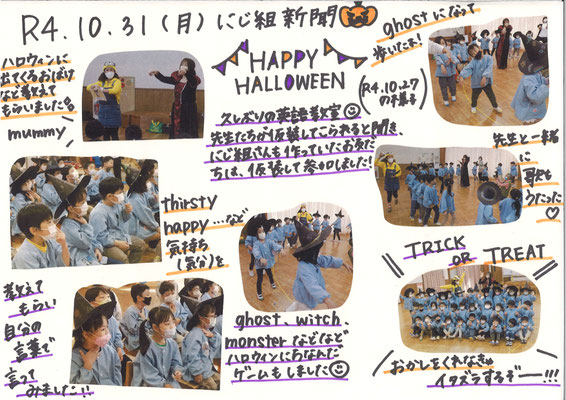 R4.10.31(月)にじ組新聞
ハロウィンに
出てくるおばけ
など教えて
もらいました
mummy
HAPPY
HALLOWEEN
(R4.10.27
の様子)
ghostになって
歩いたよ!
久しぶりの英語教室
先生たちが仮装してこられると聞き、
にじ組さんも作っていたお友だ
ちは、仮装して参加しました!
先生と一緒
に
歌も
うたった
♡
thirsty
happy…など
気持ち
(気分)を
教えて
もらい
自分の
言葉で
言って
みました!!
ghost、witch、
monsterなどなど
ハロウィンにちなんだ
ゲームもしました
TRICK
OR TREAT
おかしをくれなきゃ
イタズラするぞー!!!